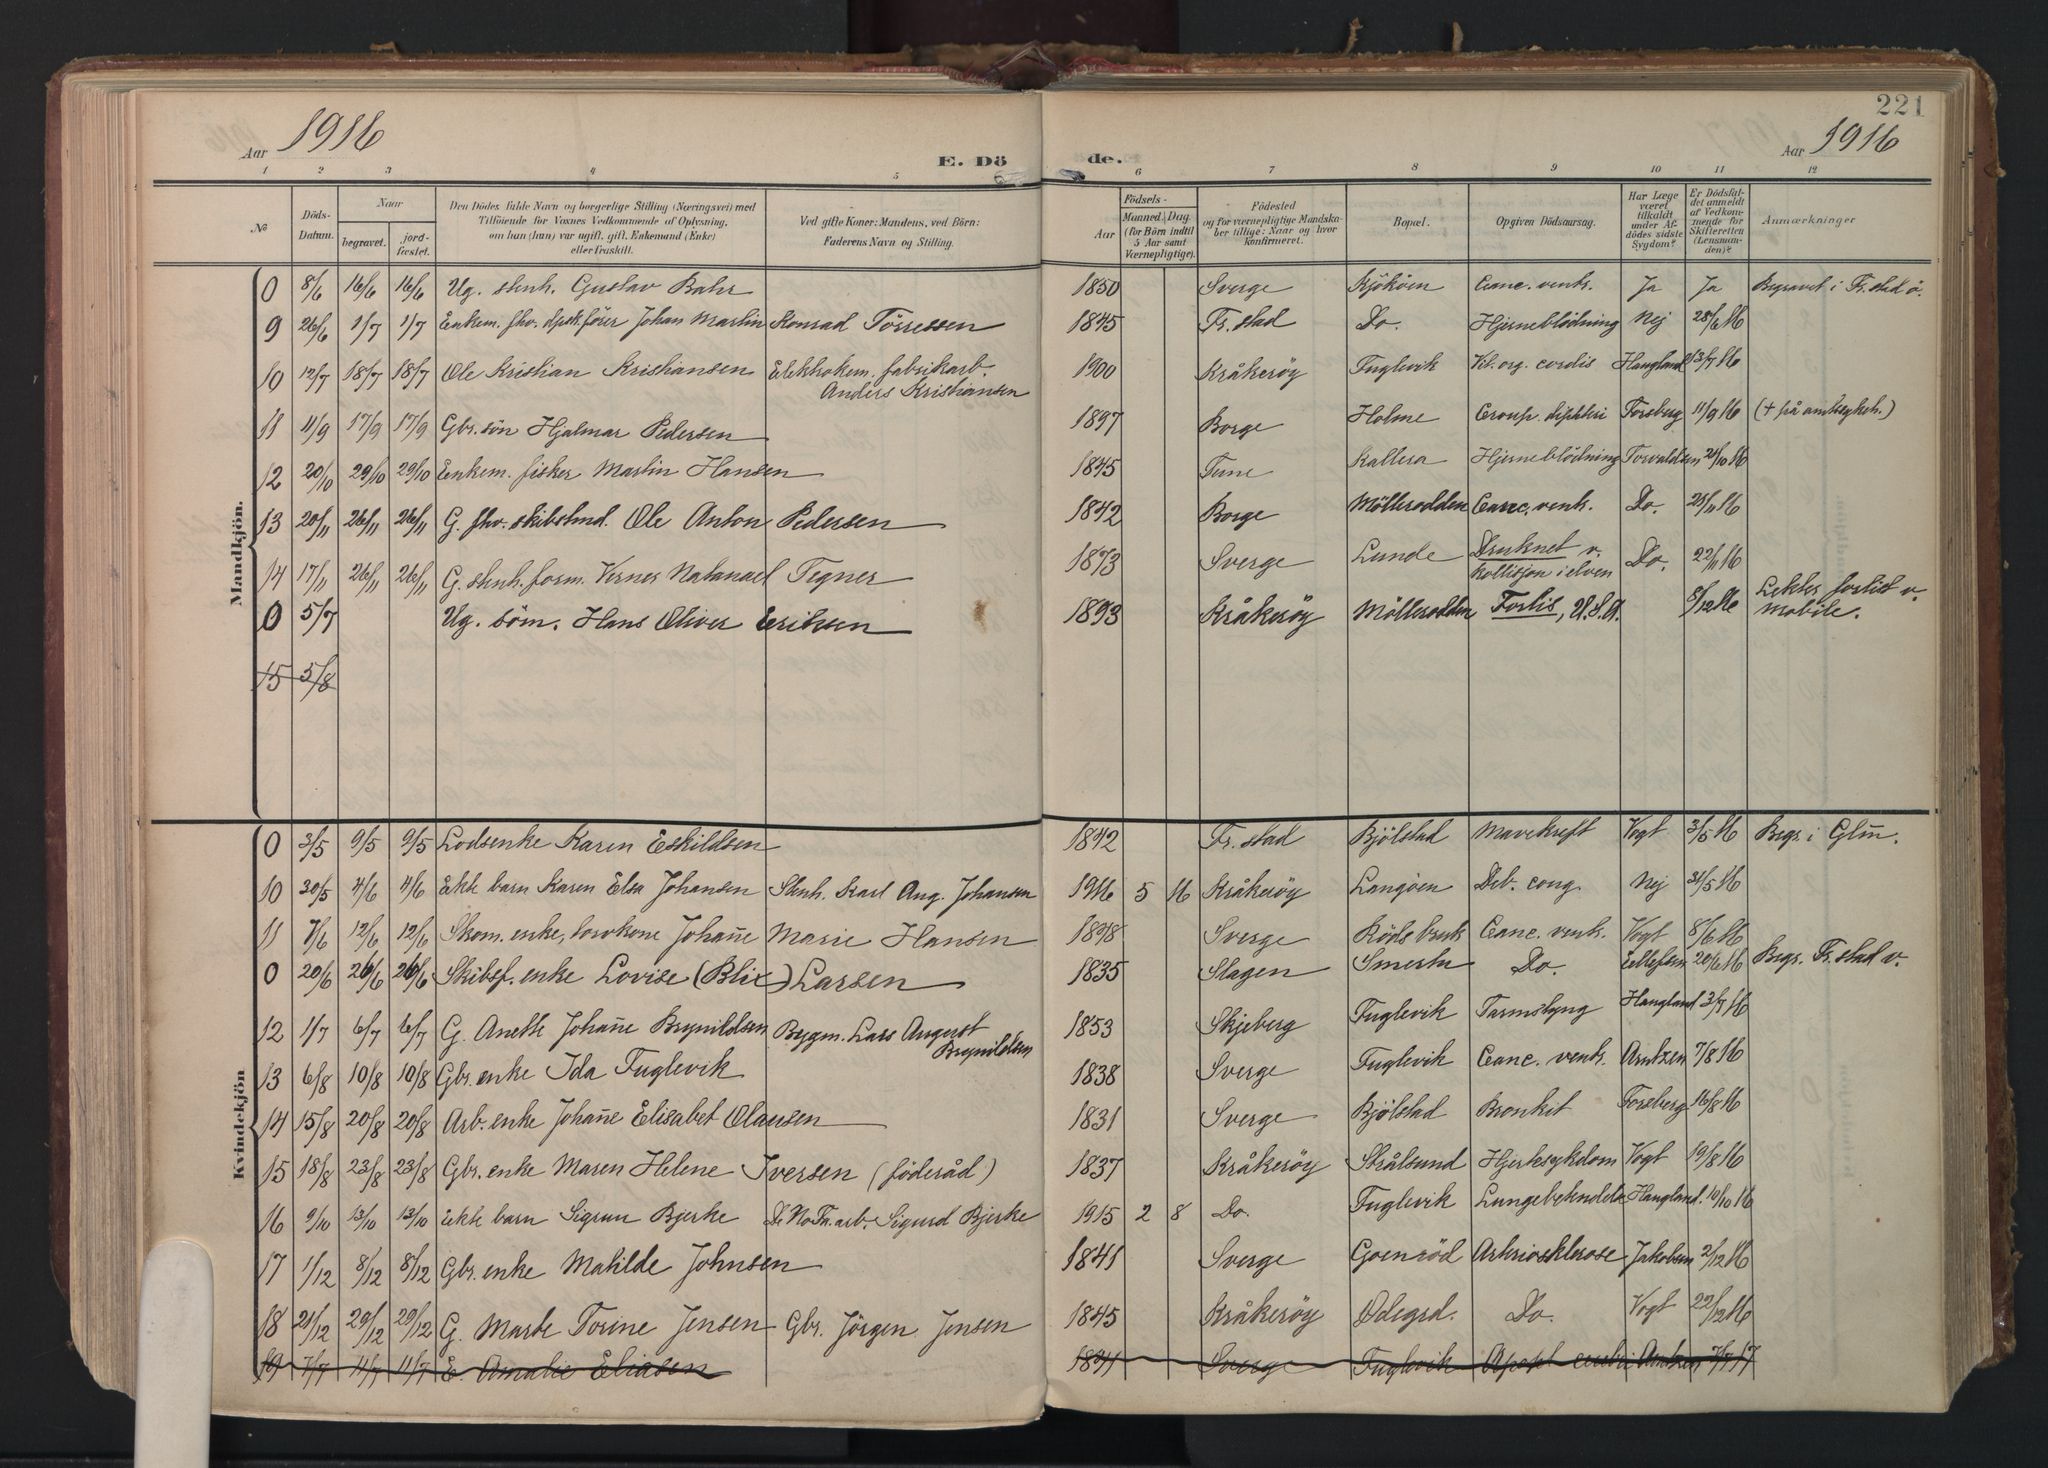 221
Aar 1916 E. Dö de. Aar 1916
1 2 3 4 5 6 7 8 9 10 11 12
№ Döds-Datum. Naar begravet. jordfæstet. Den Dödes fulde Navn og borgerlige Stilling (Næringsvei) med Tilföiende for Voxnes Vedkommende af Oplysning, om han (hun) var ugift, gift, Enkemand (Enke) eller fraskilt. Ved gifte Koner: Mandens, ved Börn: Faderens Navn og Stilling. Födsels- Aar Maaned. Dag. (for Börn indtil 5 Aar samt Værnepligtige). Födested og for værnepligtige Mandskaber tillige: Naar og hvor konfirmeret. Bopæl. Opgiven Dödsaarsag. Har Læge været tilkaldt under Afdödes sidste Sygdom? Er Dödsfaldet anmeldt af Vedkommende for Skifteretten (Lensmanden)? Anmærkninger
Mandkjön.
0 8/6 16/6 16/6 Ug. stenh. Gustav Bahr 1850 Sverge Kjököen Canc. ventr. Ja Ja Begravet i Fr.stad ö.
9 26/6 1/7 1/7 Enkem. fhv. dpsk.förer Johan Martin Konrad Törressen 1845 Fr.stad Do. Hjerneblödning Nej 28/6 16
10 12/7 18/7 18/7 Ole Kristian Kristiansen Elektrokem. fabrikarb. Anders Kristiansen 1900 Kråkeröy Fuglevik Vit. org. cordis Haugland 13/7 16
11 11/9 17/9 17/9 Gbr.sön Hjalmar Pedersen 1897 Borge Holme Croup. difteri Forsberg 11/9 16 (+ på amtsykeh.)
12 20/10 29/10 29/10 Enkem. fisker Martin Hansen 1845 Tune Kallera Hjerneblödning Torvaldsen 21/10 16
13 20/11 26/11 26/11 G. fhv. skibstmd. Ole Anton Pedersen 1842 Borge Möllerodden Canc. ventr. Do. 21/11 16
14 17/11 26/11 26/11 G. stenh. form. Verner Natanael Tegner 1873 Sverge Lunde Druknet v. kollisjon i elven Do. 22/11 16
0 5/7 Ug. söm. Hans Oliver Eriksen 1893 Kråkeröy Möllerodden Forlis, U.S.A. 8/12 16 Lekter forlist v. Mobile.
15 5/8
Kvindekjön
0 3/5 9/5 9/5 Lodsenke Karen Eskildsen 1842 Fr.stad Bjölstad Mavekreft Vogt 3/5 16 Begr. i Glm.
10 30/5 4/6 4/6 Ekte barn Karen Elsa Johansen Stenh. Karl Aug. Johansen 1916 5 16 Kråkeröy Langöen Deb. cong. Nej 31/5 16
11 7/6 12/6 12/6 Skom. enke, torvkone Johanne Marie Hansen 1848 Sverge Röds bruk Canc. ventr. Vogt 8/6 16
0 20/6 26/6 26/6 Skibsf. enke Lovise (Blix) Larsen 1835 Slagen Smertu Do. Ellefsen 20/6 16 Begr. Fr.stad v.
12 1/7 6/7 6/7 G. Anette Johanne Brynildsen Bygm. Lars August Brynildsen 1853 Skjeberg Fuglevik Tarmslyng Haugland 3/7 16
13 6/8 10/8 10/8 Gbr. enke Ida Fuglevik 1838 Sverge Fuglevik Canc. ventr. Arntzen 7/8 16
14 15/8 20/8 20/8 Arb. enke Johanne Elisabet Olausen 1831 Sverge Bjölstad Bronkit Forsberg 16/8 16
15 18/8 23/8 23/8 Gbr. enke Maren Helene Iversen (föderåd) 1837 Kråkeröy Strålsund Hjertesykdom Vogt 19/8 16
16 9/10 13/10 13/10 Ekte barn Sigrun Bjerke De No Fa. arb. Sigurd Bjerke 1915 2 8 Do. Fuglevik Lungebetendelse Haugland 10/10 16
17 1/12 8/12 8/12 Gbr. enke Matilde Johnsen 1841 Sverge Goenröd Arteriosklerose Jakobsen 2/12 16
18 21/12 29/12 29/12 G. Marte Torine Jensen Gbr. Jörgen Jensen 1845 Kråkeröy Ødegrd. Do. Vogt 22/12 16
19 7/7 11/7 11/7 E. Amalie Eliasen 1841 Sverge Fuglevik Apopl. cerebri Arntzen 7/7 17